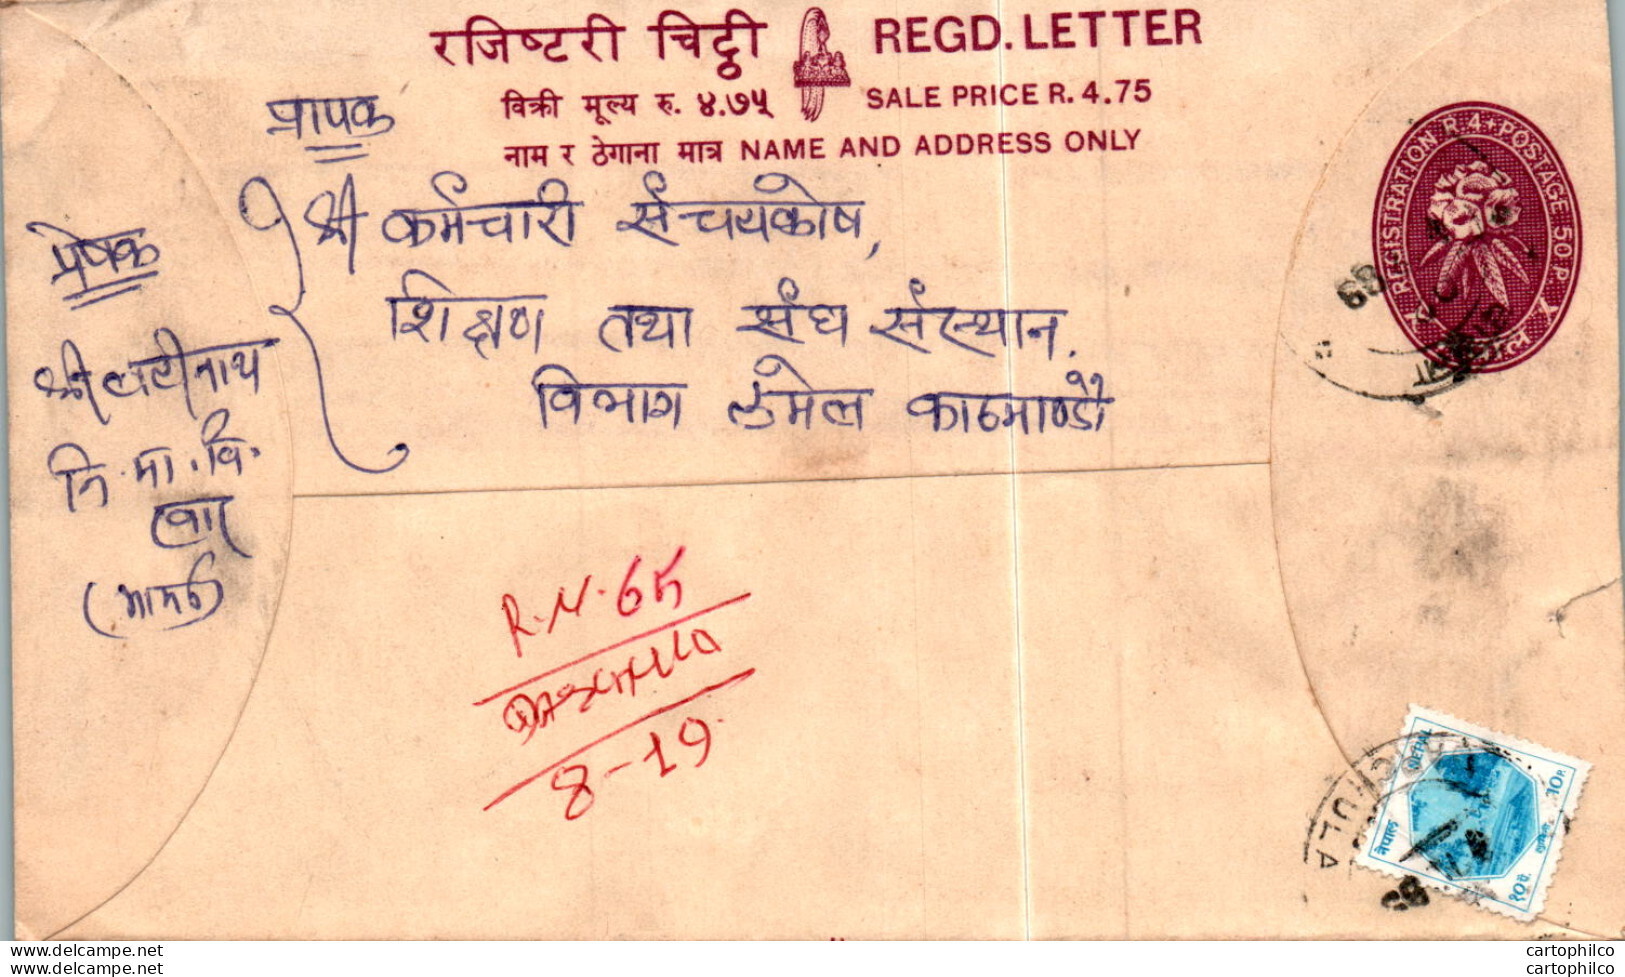 रजिष्टरी चिट्ठी REGD. LETTER
विक्री मूल्य रु. ४.७५ SALE PRICE R. 4.75
नाम र ठेगाना मात्र NAME AND ADDRESS ONLY
REGISTRATION R 4 + POSTAGE 50 P
प्रापक
श्री कर्मचारी संचयकोष,
शिक्षण तथा संघ संस्थान.
विभाग ठुमेल काठमाण्डौ
प्रेषक
श्री लटीनाथ
नि. मा. वि.
(मामर्ड)
R.N. 65
DARCHULA
8-19
नेपाल NEPAL
१० पै. 10 P.
www.delcampe.net
www.delcampe.net
cartophilco
cartophilco